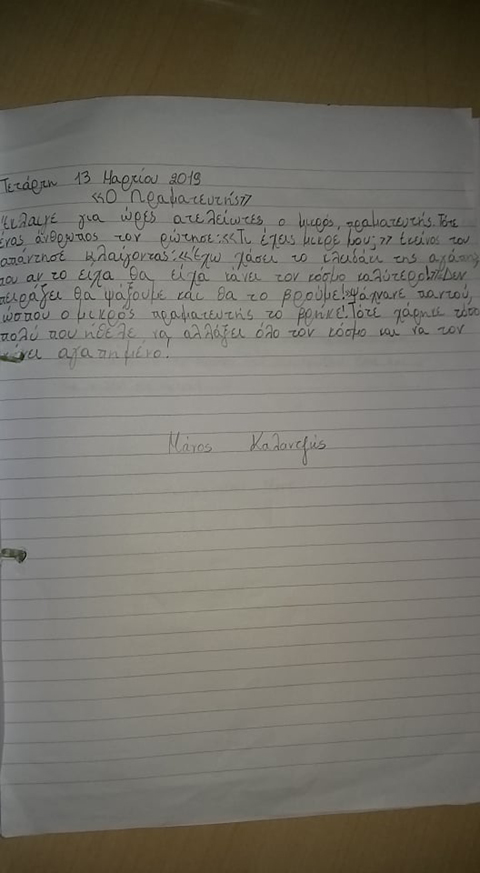 Τετάρτη 13 Μαρτίου 2019
«Ο Πραματευτής»
Έκλαιγε για ώρες ατελείωτες ο μικρός, πραματευτής. Τότε
ένας άνθρωπος τον ρώτησε: «Τι έχεις μικρέ μου;» Εκείνος του
απάντησε κλαίγοντας: «Έχω χάσει το κλειδάκι της αγάπης
που αν το είχα θα είχα κάνει τον κόσμο καλύτερο!» «Δεν
πειράζει θα ψάξουμε και θα το βρούμε!» Ψάχνανε παντού,
ώσπου ο μικρός πραματευτής το βρήκε! Τότε χάρηκε τόσο
πολύ που ήθελε να αλλάξει όλο τον κόσμο και να τον
κάνει αγαπημένο.
Μάνος Καλαντζής